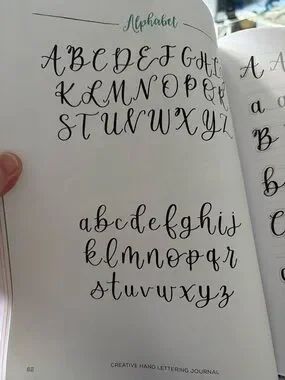 Alphabet
A B C D E F G H I J
K L M N O P Q R
S T U V W X Y Z
a b c d e f g h i j
k l m n o p q r
s t u v w x y z
62
CREATIVE HAND LETTERING JOURNAL
A A
a a
B
b
C